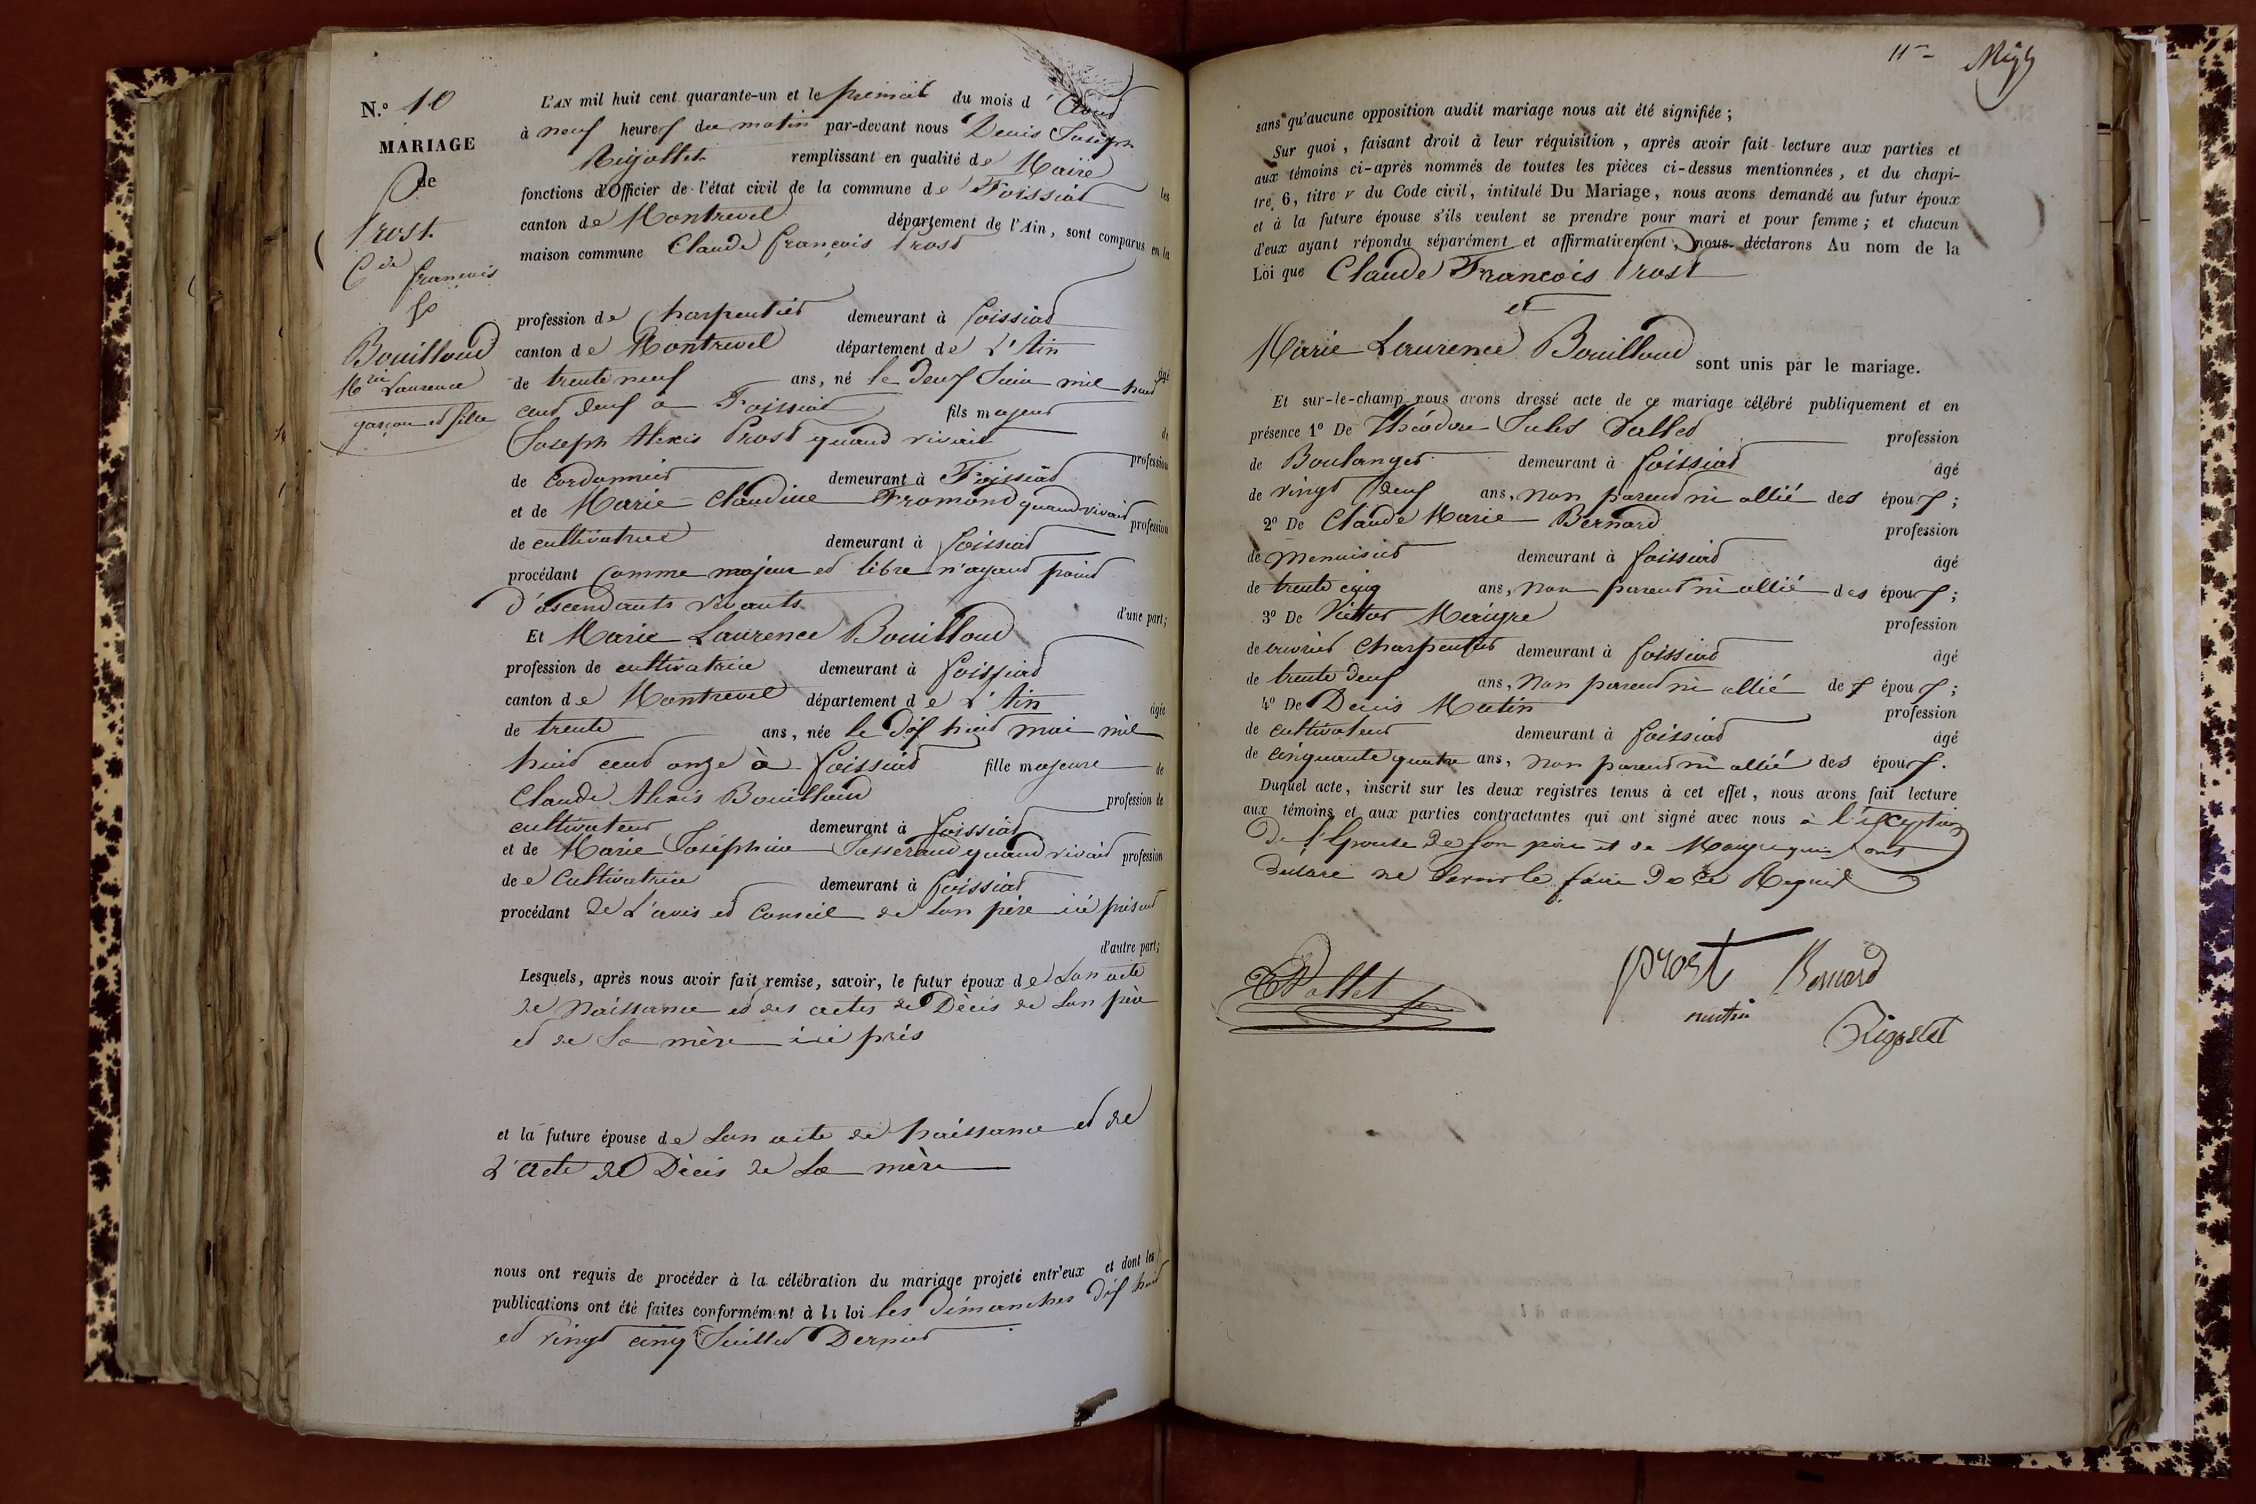 N.º 10
MARIAGE
de
Prost
Cde françois
&
Bouilloud
Mrie Laurence
garçon et fille
L'AN mil huit cent quarante-un et le premier du mois d'Aout
à neuf heures du matin par-devant nous Denis Joseph
Rigollet remplissant en qualité de Maire les
fonctions d'Officier de l'état civil de la commune de Foissiat
canton de Montrevel département de l'Ain, sont comparus en la
maison commune Claude françois Prost
profession de Charpentier demeurant à foissiat
canton de Montrevel département de L'Ain âgé
de trente neuf ans, né le deux Juin mil huit
cent deux a Foissiat fils majeur de
Joseph Alexis Prost quand vivait profession
de Cordonnier demeurant à Foissiat
et de Marie Claudine Fromond quand vivait profession
de cultivatrice demeurant à foissiat
procédant Comme majeur et libre n'ayant point
d'ascendants vivants d'une part;
Et Marie Laurence Bouilloud
profession de cultivatrice demeurant à foissiat
canton de Montrevel département de L'Ain âgée
de trente ans, née le dix huit mai mil
huit cent onze à foissiat fille majeure de
Claude Alexis Bouilloud profession de
cultivateur demeurant à foissiat
et de Marie Joséphine quand vivait profession
de Cultivatrice demeurant à foissiat
procédant de L'avis et Conseil de son père ici présent
d'autre part;
Lesquels, après nous avoir fait remise, savoir, le futur époux de Son acte
de Naissance et des actes de Décès de Son père
et de Sa mère ici près
et la future épouse de Son acte de naissance et de
L'acte de Décès de Sa mère
nous ont requis de procéder à la célébration du mariage projeté entr'eux et dont les
publications ont été faites conformément à la loi les dimanches dix huit
et vingt cinq Juillet Dernier
11
sans qu'aucune opposition audit mariage nous ait été signifiée;
Sur quoi, faisant droit à leur réquisition, après avoir fait lecture aux parties et
aux témoins ci-après nommés de toutes les pièces ci-dessus mentionnées, et du chapi-
tre 6, titre v du Code civil, intitulé Du Mariage, nous avons demandé au futur époux
et à la future épouse s'ils veulent se prendre pour mari et pour femme; et chacun
d'eux ayant répondu séparément et affirmativement, nous déclarons Au nom de la
Loi que Claude François Prost
et
Marie Laurence Bouilloud sont unis par le mariage.
Et sur-le-champ nous avons dressé acte de ce mariage célébré publiquement et en
présence 1º De Théodore Jules Pallet profession
de Boulanger demeurant à foissiat âgé
de vingt deux ans, non parent ni allié des époux;
2º De Claude Marie Bernard profession
de menuisier demeurant à foissiat âgé
de trente cinq ans, non parent ni allié des époux;
3º De Victor Maigre profession
de ouvrier Charpentier demeurant à foissiat âgé
de trente deux ans, non parent ni allié des époux;
4º De Denis Mutin profession
de cultivateur demeurant à foissiat âgé
de cinquante quatre ans, non parent ni allié des époux.
Duquel acte, inscrit sur les deux registres tenus à cet effet, nous avons fait lecture
aux témoins et aux parties contractantes qui ont signé avec nous à l'exception
de l'Epouse de son père et de Maigre qui ont
déclaré ne Savoir le faire de ce Requis
Pallet
prost
Bernard
mutin
Rigollet